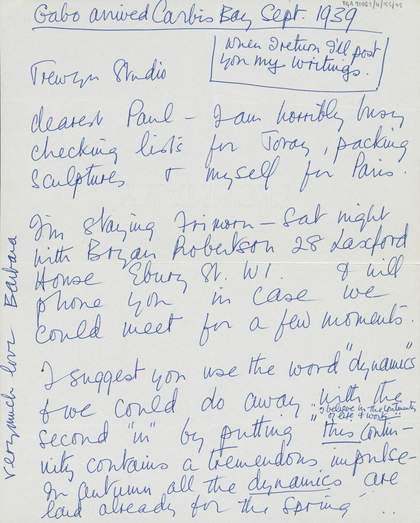 Gabo arrived Carbis Bay Sept. 1939
When I return I'll post
you my writings.
Trewyn Studio
dearest Paul – I am horribly busy
checking lists for Toray, packing
sculptures & myself for Paris.
I'm staying Fri morn – Sat night
with Bryan Robertson 28 Laxford
House Ebury St. W1. & will
phone you in case we
could meet for a few moments.
I suggest you use the word "dynamics"
& we could do away with the
"I believe in the continuity
of life & work"
second "in" by putting "this contin-
uity contains a tremendous impulse-
In autumn all the dynamics are
laid already for the spring"
very much love Barbara